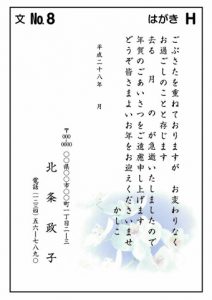 文 No.8
はがき H
ごぶさたを重ねておりますが お変わりなく
お過ごしのことと存じます
去る 月 の が急逝いたしましたので
年賀のごあいさつをご遠慮申し上げます
どうぞ皆さまよいお年をお迎えくださいませ
かしこ
平成二十八年 月
〒000-0000
〇〇県〇〇市〇〇町一丁目二―三
北条政子
電話(一二三)四五六―七八九〇